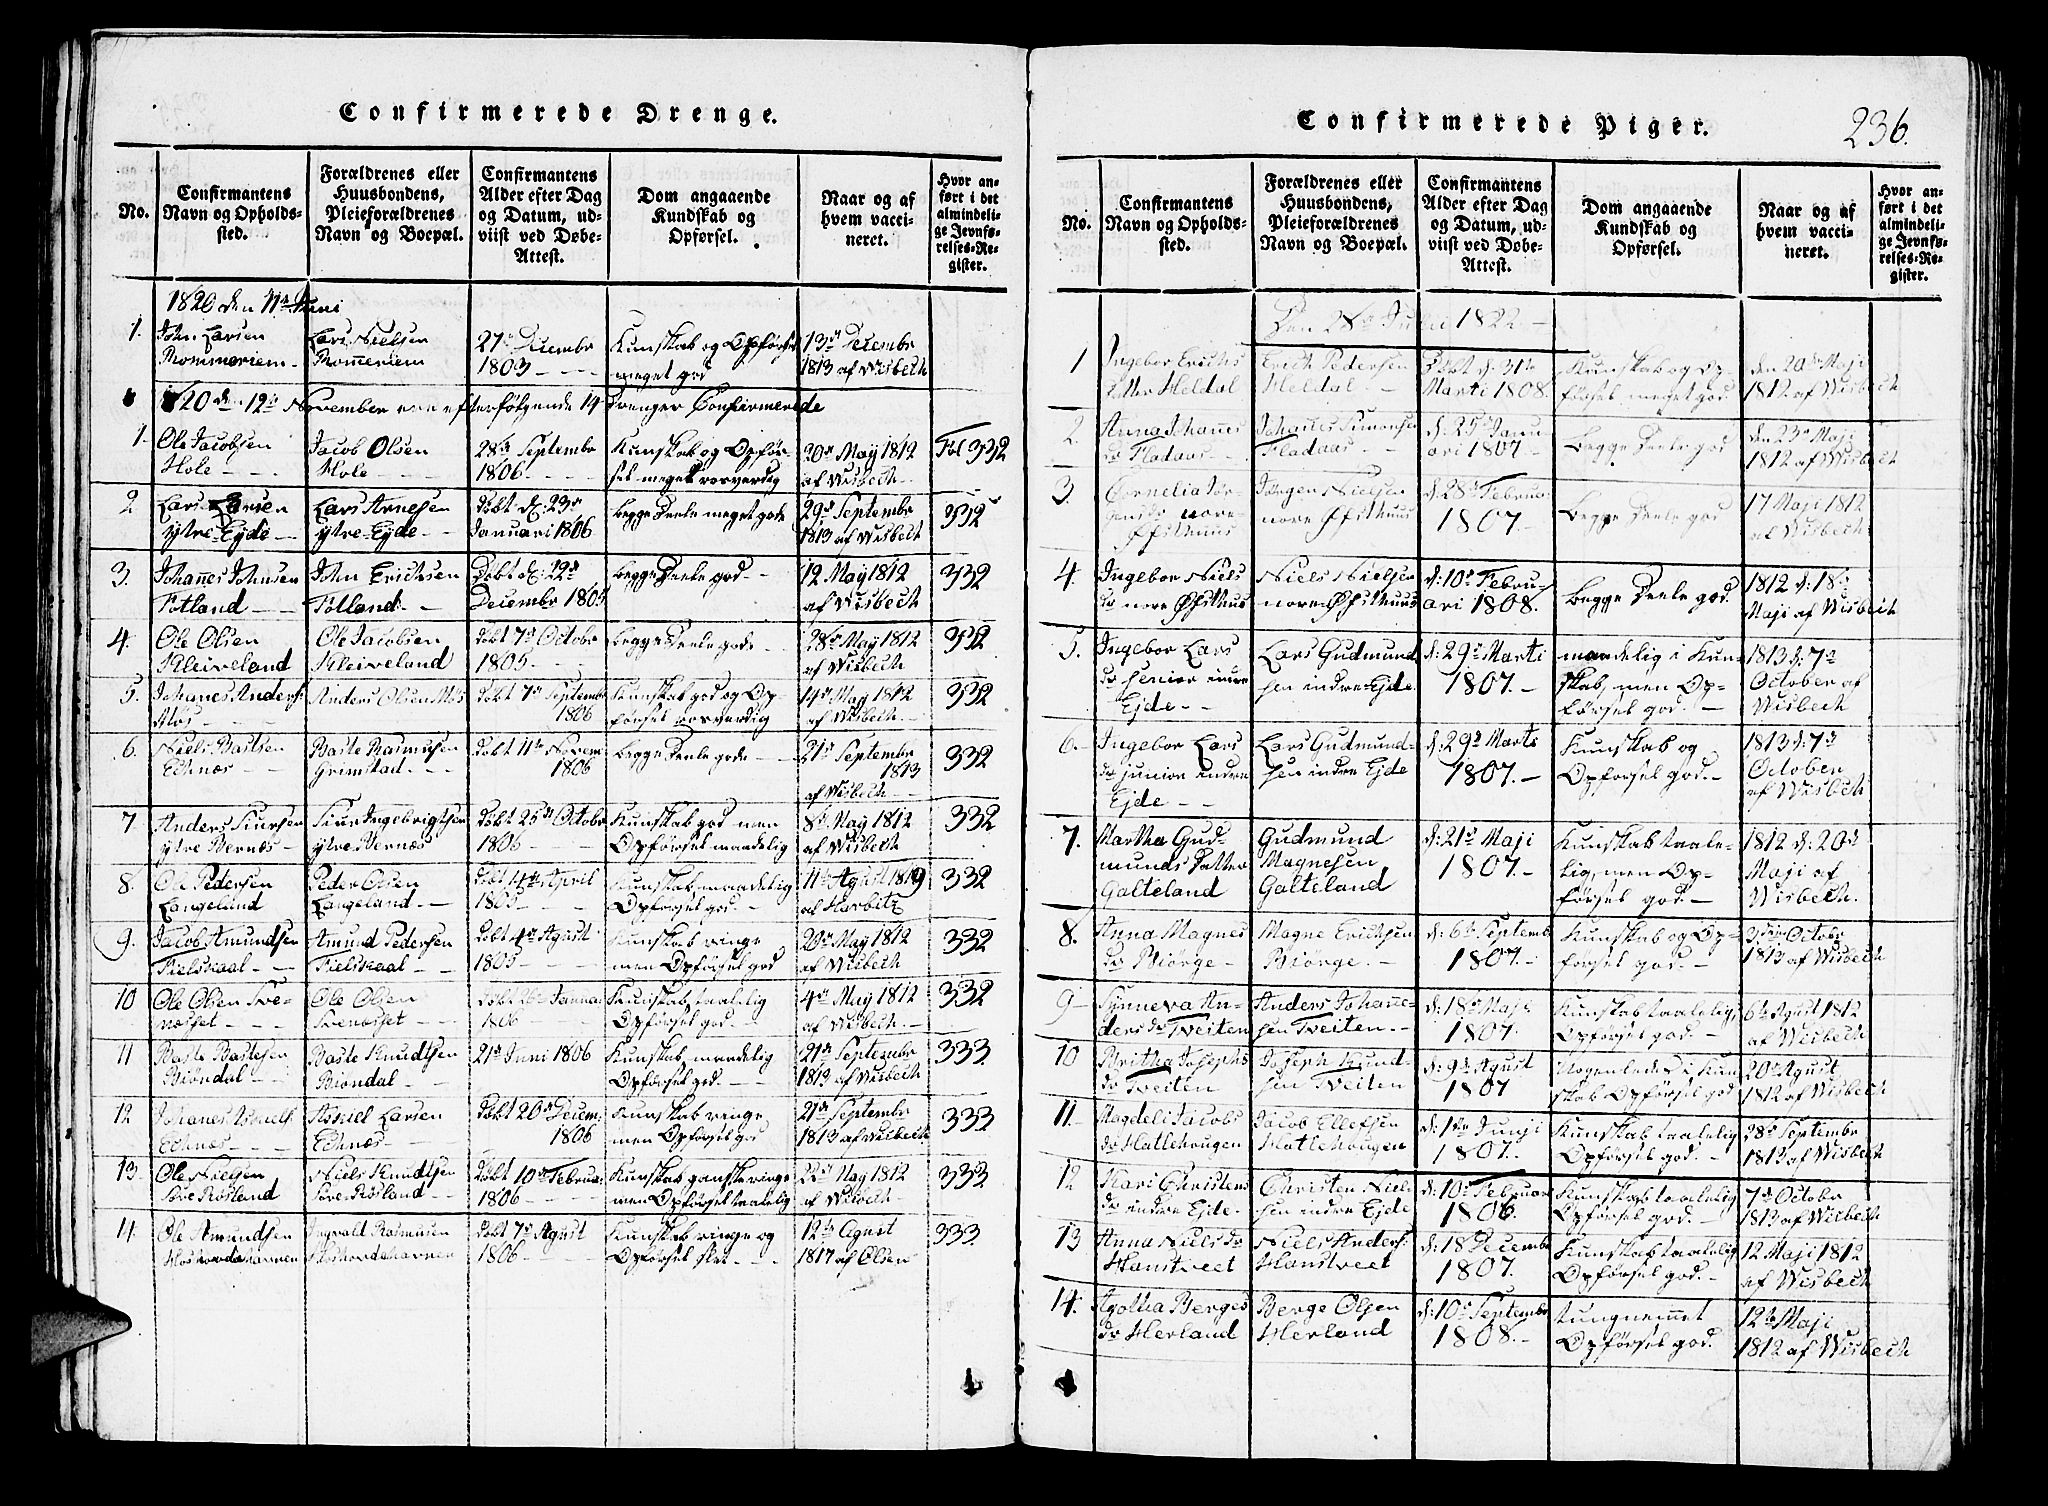 Confirmerede Drenge.
No.
Confirmantens Navn og Opholds-sted.
Forældrenes eller Huusbondens, Pleieforældrenes Navn og Boepæl.
Confirmantens Alder efter Dag og Datum, ud-viist ved Døbe-Attest.
Dom angaaende Kundskab og Opførsel.
Naar og af hvem vacci-neret.
Hvor an-ført i det almindeli-ge Jevnfø-relses-Re-gister.
1820 den 11te Juni
1. John Larsen Mommeriem Lars Nielsen Mommeriem 27de Decembr 1803 Kunskab og Opførsel meget god 13de Decembr 1813 af Wisbech
1820 den 12te November ere efterfølgende 14 Drenger Confirmerede
1. Ole Jacobsen Hole Jacob Olsen Hole 28de Septembr 1806 Kunskab og Opfør-sel meget rosværdig 20de May 1812 af Wisbech Fol 332
2 Lars Larsen ÿtre-Eÿde Lars Arnesen ÿtre-Eÿde Døbt d: 23de Januari 1806 begge Deele meget gode 29de Septembr 1813 af Wisbech 332
3. Johannes Johnsen Fotland John Erichsen Fotland Døbt d: 12te Decembr 1805 begge Deele god 12 May 1812 af Wisbech 332
4. Ole Olsen Kleiveland Ole Jacobsen Kleiveland Døbt 7de Octobr 1805 begge Deele gode 28de May 1812 af Wisbech 332
5. Johanes Anders: Mos Anders Olsen Mos Døbt 7de Septembr 1806 Kunskab god og Op-førsel rosværdig 14de May 1812 af Wisbech 332
6. Niels Bastsen Echnæs Baste Rasmusen Grimstad Døbt 11te Novem: 1806 begge Deele gode 21de Septembr 1813 af Wisbech 332
7 Anders Siursen ÿtre Bernæs Siur Ingebrigtsen ÿtre Bernæs Døbt 25de Octobr 1806 Kunskab god men Opførsel maadelig 8de May 1812 af Wisbech 332
8. Ole Pedersen Langeland Peder Olsen Langeland Døbt 4de April 1805 Kunskab maadelig Opførsel god 11te Agust 1819 af Harbitz 332
9. Jacob Amundsen Fielskaal Amund Pedersen Fielskaal Døbt 4de Agust 1805 Kunskab ringe men Opførsel god 20de May 1812 af Wisbech 332
10 Ole Olsen Sve-nosset Ole Olsen Svenosset Døbt 26de Janua: 1806 Kunskab taalelig Opførsel god 4de May 1812 af Wisbech 332
11 Baste Bastesen Biöndal Baste Knudtsen Biöndal 21de Juni 1806 Kunskab maadelig Opførsel god 21de Septembr 1813 af Wisbech 333
12 Johanes Askiels: Echnæs Askiel Larsen Echnæs Døbt 20de Decem: 1806 Kunskab ringe men Opførsel god 21de Septembr 1813 af Wisbech 333
13. Ole Nielsen Søre Røsland Niels Knudtsen Søre Røsland Døbt 10de Februa: 1806 Kunskab ganske ringe men Opførsel taalelig 22de May 1812 af Wisbech 333
14. Ole Amundsen Døbt 7de Agust 1806 Kunskab ringe og Opførsel slet 12te Agust 1817 af Olsen 333
Confirmerede Piger.
236.
No.
Confirmantens Navn og Opholds-sted.
Forældrenes eller Huusbondens, Pleieforældrenes Navn og Boepæl.
Confirmantens Alder efter Dag og Datum, ud-viist ved Døbe-Attest.
Dom angaaende Kundskab og Opførsel.
Naar og af hvem vacci-neret.
Hvor an-ført i det almindeli-ge Jevnfø-relses-Re-gister.
Den 28de Juli 1822
1 Ingebor Erichs Datter Heldal Erich Pedersen Heldal Døbt d: 31te Marti 1808. Kunskab og Op-førsel meget god den 20de Maji 1812 af Wisbech
2. Anna Johannes dr Fladaas Johannes Simonsen Fladaas d: 25de Janu-ari 1807 begge Deele god den 23de Maji 1812 af Wisbech
3. Cornelia Jör-gens dr nore Øfsthuus Jörgen Nielsen nore Øfsthuus d: 28de Februa: 1807. begge Deele god 17 Maji 1812 af Wisbech
4. Ingebor Niels dr nore Øfsthuus Niels Nielsen nore Øfsthuus d: 10de Febru-ari 1808. begge Deele god. 1812 d: 18de Maji af Wisbech
5. Ingebor Lars dr senior indre Ejde Lars Gudmund sen indre Ejde d: 29de Marti 1807. maadelig i Kun-skab, men Op-førsel god. 1813 d: 7de October af Wisbech
6. Ingebor Lars dr junior indre Ejde Lars Gudmund-sen indre Ejde d: 29de Marti 1807. Kunskab og Opførsel god. 1813 d: 7de October af Wisbech
7. Martha Gud-munds Datter Galteland Gudmund Magnesen Galteland d: 21de Maji 1807. Kunskab taale-lig, men Op-førsel god. 1812 d: 20de Maji af Wisbech.
8. Anna Magnes dr Biörge Magne Erichsen Biörge. d: 6te Septemb 1807. Kunskab og Op-førsel god. 3die October 1813 af Wisbech
9 Synneva An-ders dr Tveiten Anders Johanne-sen Tveiten. d: 18de Maji 1807. Kunskab taalelig, Opførsel god. 6te Agust 1812 af Wisbech
10 Britha Josephs dr Tveiten Joseph Knud-sen Tveiten d: 9de Agust 1807 Nogenlede i Kun-skab Opførsel god 20de Agust 1812 af Wisbech
11. Magdeli Jacobs dr Hatlehougen Jacob Ellefsen Hatlehougen d: 1ste Junji 1807. Kunskab taalelig Opførsel god. 28de Septembr 1813 af Wisbech
12 Kari Christens dr indre Ejde Christen Niel-sen indre Ejde d: 10de Februar 1806. Kunskab taalelig Opførsel god. 7de October 1813 af Wisbech
13 Anna Niels dr Hanstveet Niels Anders: Hanstveet d: 18 Decembr 1807. Kunskab taalelig Opførsel god. 12 Maji 1812 af Wisbech
14. Agotha Berges dr Herland Berge Olsen Herland d: 10de Septembr 1808. tungnemmet Opførsel god. 12te Maji 1812 af Wisbech